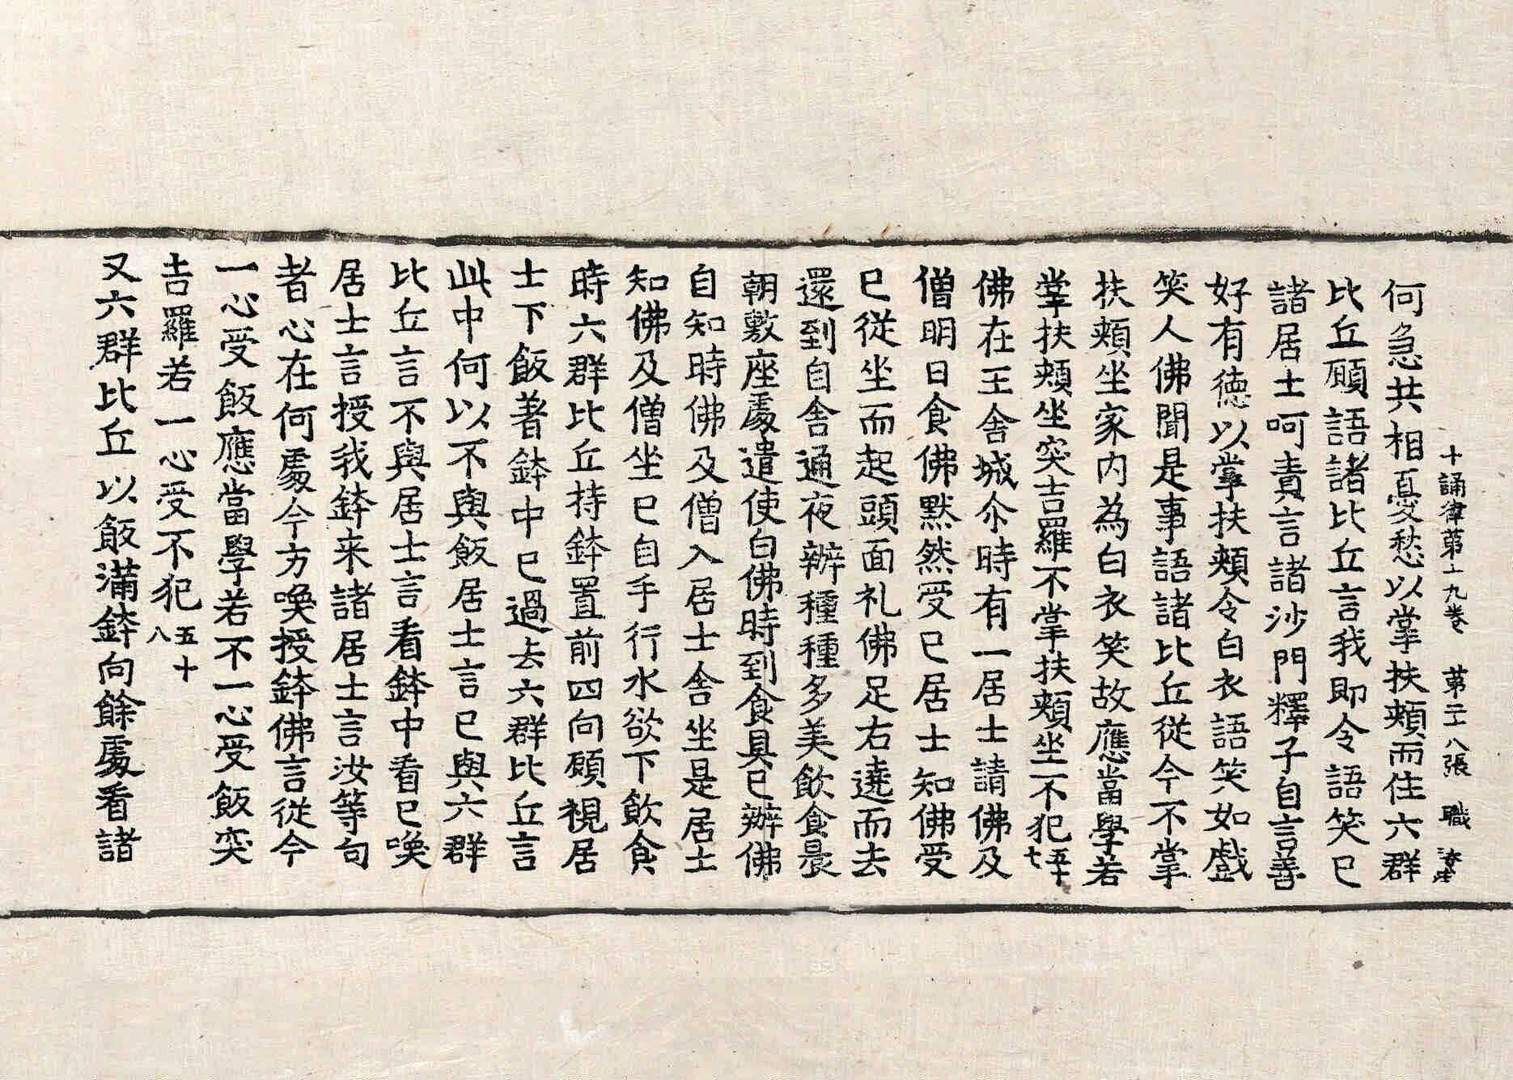 十誦律第十九卷　第二十八張　職
何急共相憂愁以掌扶頰而住六群
比丘顧語諸比丘言我即令語笑已
諸居士呵責言諸沙門釋子自言善
好有德以掌扶頰令白衣語笑如戲
笑人佛聞是事語諸比丘從今不掌
扶頰坐家內為白衣笑故應當學若
掌扶頰坐突吉羅不掌扶頰坐不犯五十七
佛在王舍城尒時有一居士請佛及
僧明日食佛默然受已居士知佛受
已從坐而起頭面礼佛足右遶而去
還到自舍通夜辦種種多美飲食晨
朝敷座處遣使白佛時到食具已辦佛
自知時佛及僧入居士舍坐是居士
知佛及僧坐已自手行水欲下飲食
時六群比丘持鉢置前四向顧視居
士下飯著鉢中已過去六群比丘言
此中何以不與飯居士言已與六群
比丘言不與居士言看鉢中看已喚
居士言授我鉢来諸居士言汝等句
者心在何處今方喚授鉢佛言從今
一心受飯應當學若不一心受飯突
吉羅若一心受不犯五十八
又六群比丘以飯滿鉢向餘處看諸